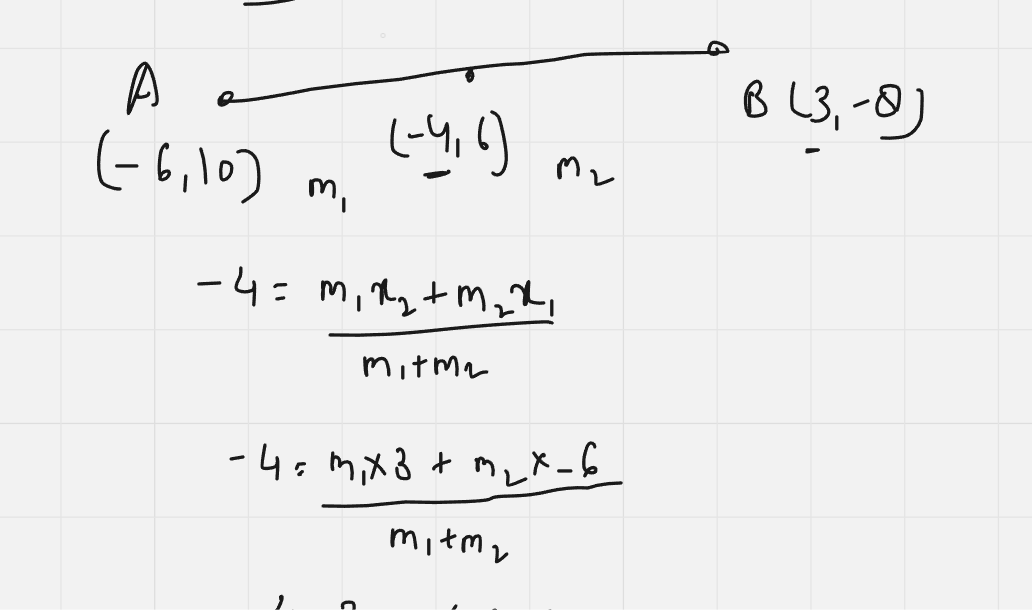 A
B (3, -8)
(-6, 10) m₁ (-4, 6) m₂
-4 = m₁x₂ + m₂x₁
m₁+m₂
-4 = m₁×3 + m₂×-6
m₁+m₂